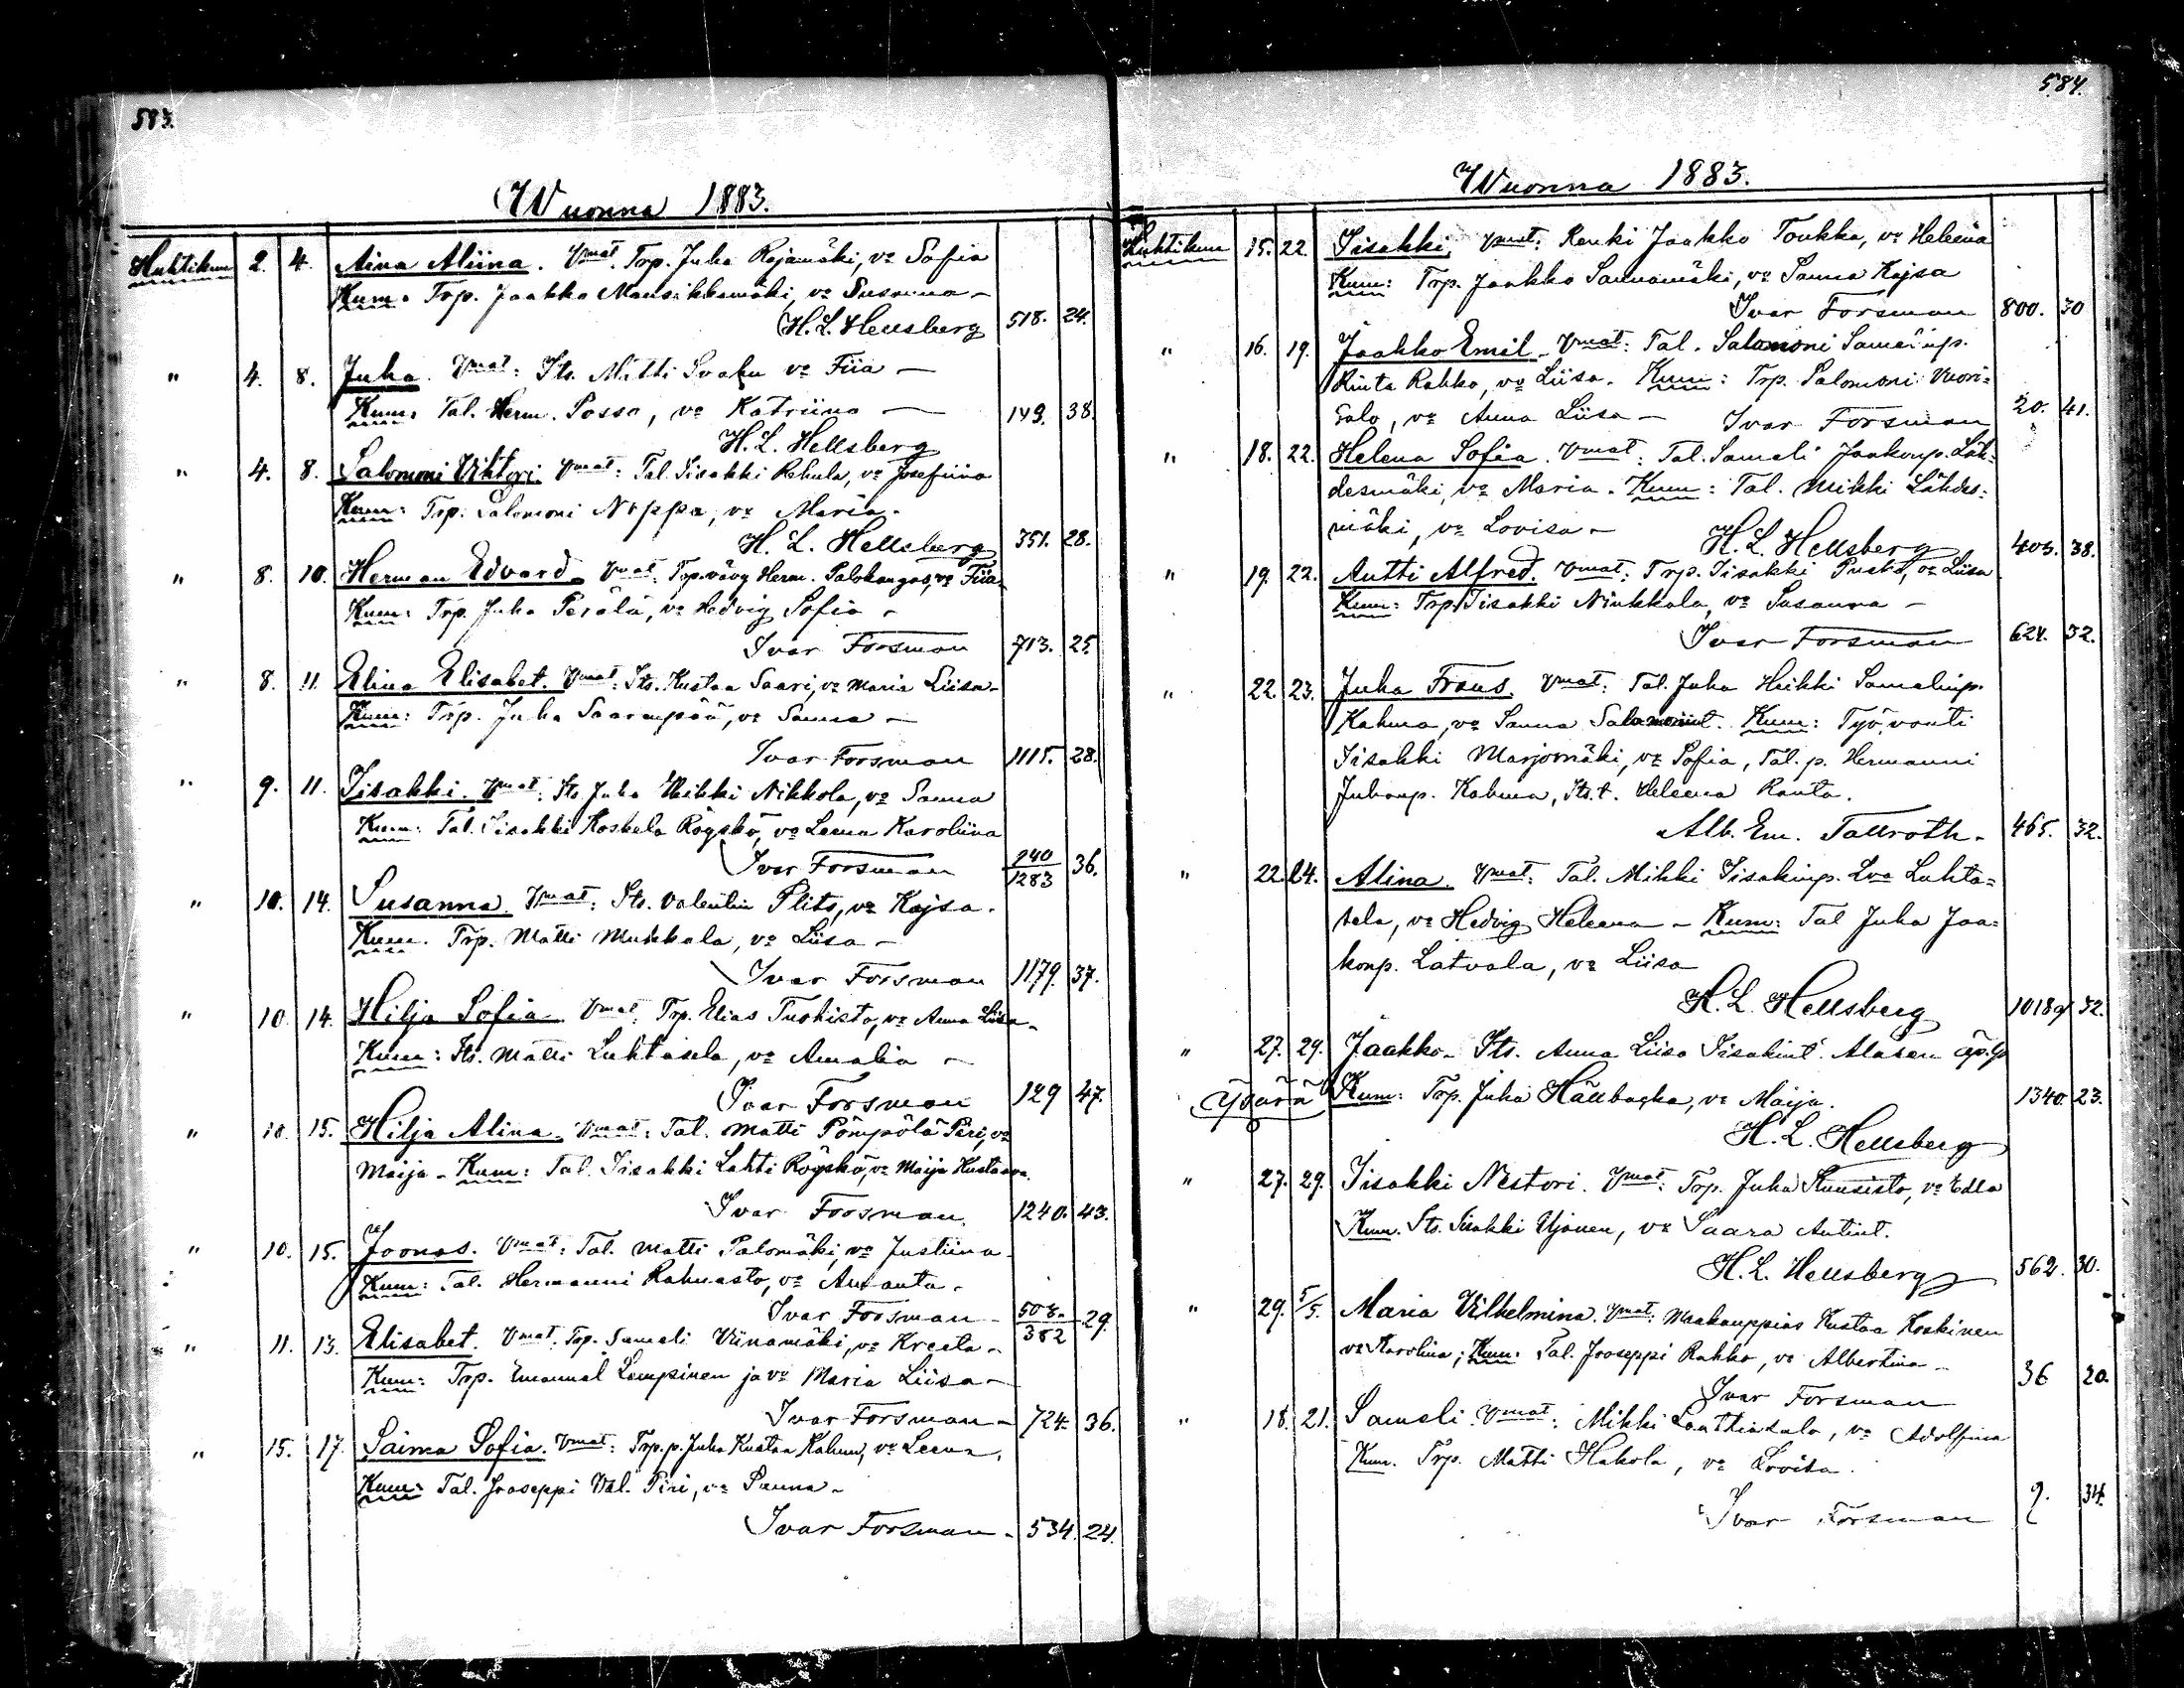 583.
Wuonna 1883.
Huhtikuu 2. 4. Aina Aliina. Vmat. Trp. Juha Rajamäki, vo Sofia
Kum. Trp. Jaakko Mansikkamäki, vo Susanna –
H. L. Hellsberg 518. 24.
" 4. 8. Juha. Vmat: Its. Matti Svahn vo Fiia –
Kum. Tal. Herm. Possa, vo Katriina –
149. 38.
H. L. Hellsberg
" 4. 8. Salomoni Viktori. Vmat: Tal. Iisakki Rahula, vo Josefiina
Kum: Trp. Salomoni Noppa, vo Maria.
H. L. Hellsberg 351. 28.
" 8. 10. Herman Edvard. Vmat: Trp. vävy Herm. Palokangas, vo Fiia
Kum: Trp. Juha Perälä, vo Hedvig Sofia –
Ivar Forsman 713. 25.
" 8. 11. Elina Elisabet. Vmat: Its. Kustaa Saari, vo Maria Liisa –
Kum: Trp. Juha Saarenpää, vo Sanna –
Ivar Forsman 1115. 28.
" 9. 11. Iisakki. Vmat: Its. Juha Heikki Nikkola, vo Sanna
Kum: Tal. Iisakki Koskela Röyskö, vo Leena Karoliina
Ivar Forsman 240/1283 36.
" 10. 14. Susanna. Vmat: Its. Valentin Plits, vo Kajsa.
Kum. Trp. Matti Mukkala, vo Liisa –
Ivar Forsman 1179. 37.
" 10. 14. Hilja Sofia. Vmat. Trp. Elias Tuohisto, vo Anna Liisa –
Kum: Its. Matti Luhtasela, vo Amalia –
Ivar Forsman 129 47.
" 10. 15. Hilja Alina. Vmat: Tal. Matti Pömpölä Piri, vo
Maija – Kum: Tal. Iisakki Lahti Röyskö, vo Maija Kustaava.
Ivar Forsman. 1240. 43.
" 10. 15. Joonas. Vmat: Tal. Matti Palomäki, vo Justiina –
Kum: Tal. Hermanni Rahnasto, vo Amanta.
Ivar Forsman – 508./382 29.
" 11. 13. Elisabet. Vmat. Trp. Sameli Viinamäki, vo Kreeta –
Kum: Trp. Emanuel Lempinen ja vo Maria Liisa –
Ivar Forsman – 724. 36.
" 15. 17. Saima Sofia. Vmat: Trp. p. Juha Kustaa Kahma, vo Leena.
Kum: Tal. Jooseppi Väl. Piri, vo Sanna –
Ivar Forsman – 534. 24.
584.
Wuonna 1883.
Huhtikuu 15. 22. Iisakki. Vmat: Renki Jaakko Toukka, vo Heleena
Kum: Trp. Jaakko Sannamäki, vo Sanna Kajsa
Ivar Forsman 800. 30
" 16. 19. Jaakko Emil – Vmat: Tal. Salomoni Samelinp.
Rinta Rahko, vo Liisa. Kum: Trp. Salomoni Vuori=
salo, vo Anna Liisa – Ivar Forsman 20. 41.
" 18. 22. Helena Sofia. Vmat: Tal. Sameli Jaakonp. Läh=
desmäki, vo Maria. Kum: Tal. Mikki Lähdes=
mäki, vo Lovisa – H. L. Hellsberg 403. 38.
" 19. 22. Antti Alfred. Vmat: Trp. Iisakki Puska, vo Liisa
Kum: Trp. Iisakki Niukkala, vo Susanna –
Ivar Forsman 624. 32.
" 22. 23. Juha Frans. Vmat: Tal. Juha Heikki Samelinp.
Kahma, vo Sanna Salomonint. Kum: Työvouti
Iisakki Marjomäki, vo Sofia, Tal. p. Hermanni
Juhanp. Kahma, Its. t. Heleena Ranta.
Alb. Em. Tallroth – 465. 32.
" 22. 24. Alina. Vmat: Tal. Mikki Iisakinp. Luhta=
sela, vo Hedvig Heleena – Kum: Tal Juha Jaa=
konp. Latvala, vo Liisa
H. L. Hellsberg 1018 32.
" 27. 29. Jaakko – Its. Anna Liisa Iisakint. Alasen äp. lp
Kum: Trp. Juha Hällbacka, vo Maija. 1340. 23.
H. L. Hellsberg
" 27. 29. Iisakki Nestori. Vmat: Trp. Juha Kuusisto, vo Edla
Kum. Its. Iisakki Ujanen, vo Saara Antint.
H. L. Hellsberg 562. 30.
" 29. 5/5. Maria Vilhelmina. Vmat: Maakauppias Kustaa Koskinen
vo Karolina; Kum: Tal. Jooseppi Rahko, vo Albertina –
Ivar Forsman 36 20.
" 18. 21. Sameli. Vmat: Mikki, vo Adolfina
Kum. Trp. Matti Hakola, vo Lovisa.
Ivar Forsman 9. 34.